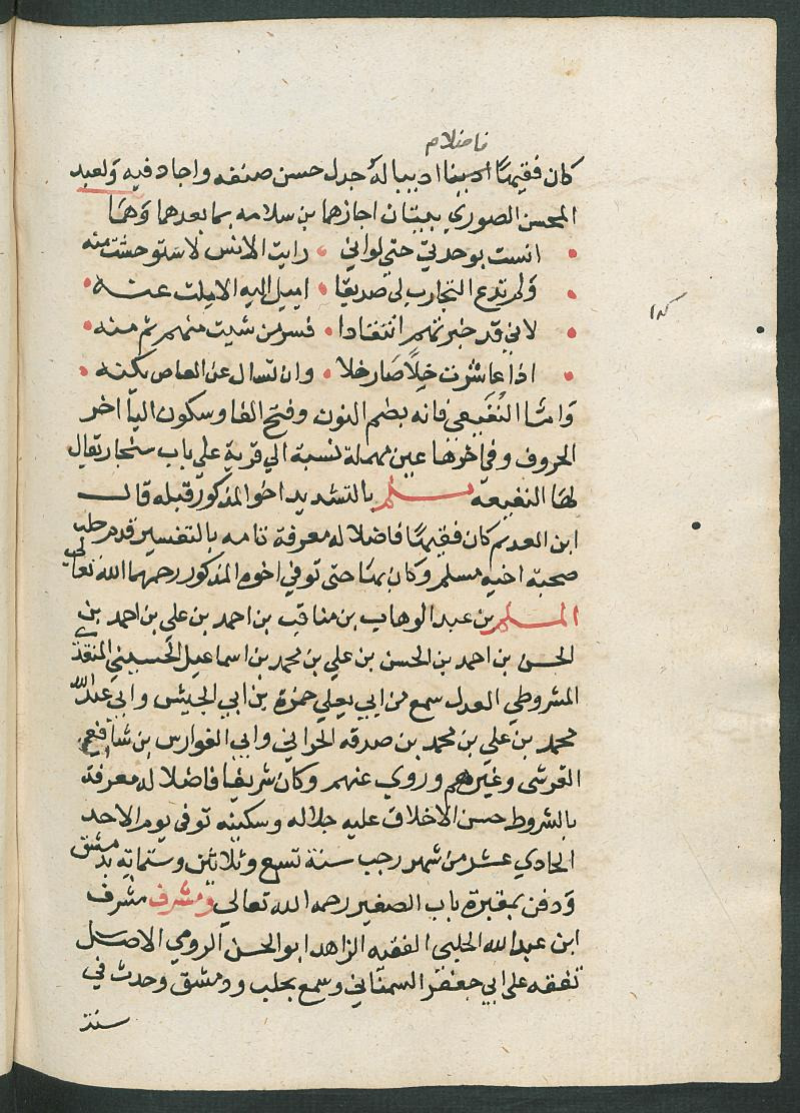 فاضلا م
كان فقيها اديبا له جدل حسن صنفه واجاد فيه ولعبد
المحسن الصوري بيتان اجازهما بن سلامه بما بعدهما وهما
انست بوحدتي حتى لواني • رايت الانس لاستوحشت منه
ولم تدع التجارب لي صديقا • اميل اليه الا ملت عنه
كذا
لاني قد خبرتهم انتقادا • فسر من شيت منهم ثم منه
اذا عاشرت خلا صار خلا • وان تسال عن العاص بكنه
واما النفيعي فانه بضم النون وفتح الفا وسكون اليا اخر
الحروف وفي اخرها عين مهملة نسبة الي قرية علي باب سنجار يقال
لها النفيعه مسلم بالتشديد اخو المذكور قبله قال
ابن العديم كان فقيها فاضلا له معرفة تامه بالتفسير قدم حلب
صحبة اخيه مسلم وكان بها حتى توفي اخوه المذكور رحمهما الله تعالى
المسلم بن عبد الوهاب بن مناقب بن احمد بن علي بن احمد بن
الحسن بن احمد بن الحسن بن علي بن محمد بن اسماعيل الحسيني المنقذي
المشروطي العدل سمع من ابي يعلي حمزة بن ابي الجيش وابي عبد الله
محمد بن علي بن محمد بن صدقه الحراني وابي الفوارس بن شافع
القرشى وغيرهم وروي عنهم وكان شريفا فاضلا له معرفة
بالشروط حسن الاخلاق عليه جلاله وسكينه توفى يوم الاحد
الحادي عشر من شهر رجب سنة تسع وثلاثين وستمايه بدمشق
ودفن بمقبرة باب الصغير رحمه الله تعالي ومشرف مشرف
ابن عبد الله الحلبي الفقيه الزاهد ابو الحسن الرومي الاصل
تفقه على ابي جعفر السمناني وسمع بحلب ودمشق وحدث في
سنة